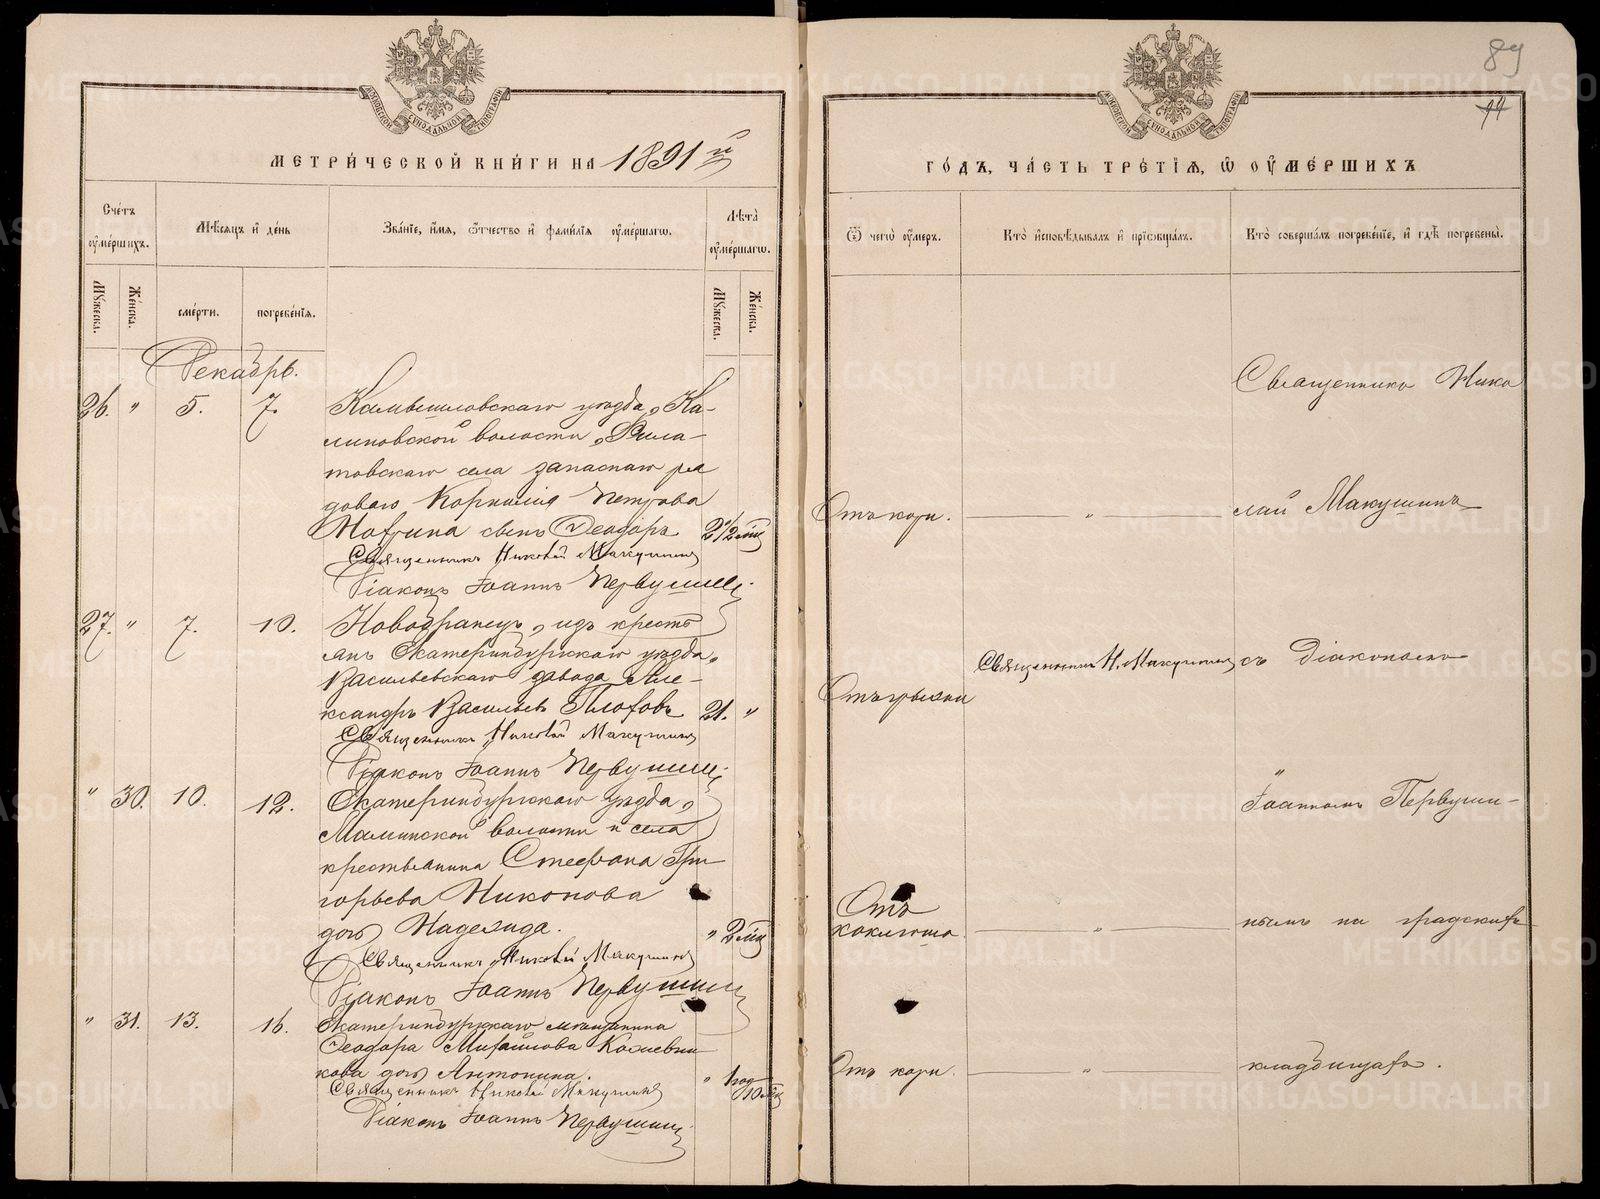 МЕТРИЧЕСКОЙ КНИГИ НА 1891й
Счетъ умершихъ.
Мѣсяцъ и день
Званіе, имя, отчество и фамилія умершаго.
Лѣта умершаго.
Мужеска.
Женска.
смерти.
погребенія.
Мужеска.
Женска.
Декабрь.
26. " 5. 7. Камышловскаго уѣзда, Ка-
линовской волости, Фила-
товскаго села запаснаго ря
доваго Корнилія Петрова
сынъ Ѳеодоръ. 2½ мѣс
Священникъ Николай Макушинъ
Діаконъ Іоаннъ Первушинъ
27. " 7. 10. Новобранецъ, изъ кресть
янъ Екатеринбургскаго уѣзда,
Васильевскаго завода Але-
ксандръ Васильевъ 21. "
Священникъ Николай Макушинъ
Діаконъ Іоаннъ Первушинъ
" 30. 10. 12. Екатеринбургскаго уѣзда,
Маминской волости и села
крестьянина Стефана Гри
горьева Никонова
дочь Надежда. " 2 мѣс
Священникъ Николай Макушинъ
Діаконъ Іоаннъ Первушинъ
" 31. 13. 16. Екатеринбургскаго мѣщанина
Ѳеодора Михайлова Кожевни
кова дочь Антонина. " 1 год 10 мѣс
Священникъ Николай Макушинъ
Діаконъ Іоаннъ Первушинъ
89
44
ГОДЪ, ЧАСТЬ ТРЕТІЯ, Ѿ ОУМЕРШИХЪ
Ѿ чего умеръ.
Кто исповѣдывалъ и пріобщалъ.
Кто совершалъ погребеніе, и гдѣ погребены.
Священникъ Нико
Отъ кори. " лай Макушинъ
Священникъ Н. Макушинъ съ Діакономъ
Отъ грыжи
Іоанномъ Первуши-
Отъ
коклюша. " нымъ на градскихъ
Отъ кори. " кладбищахъ.